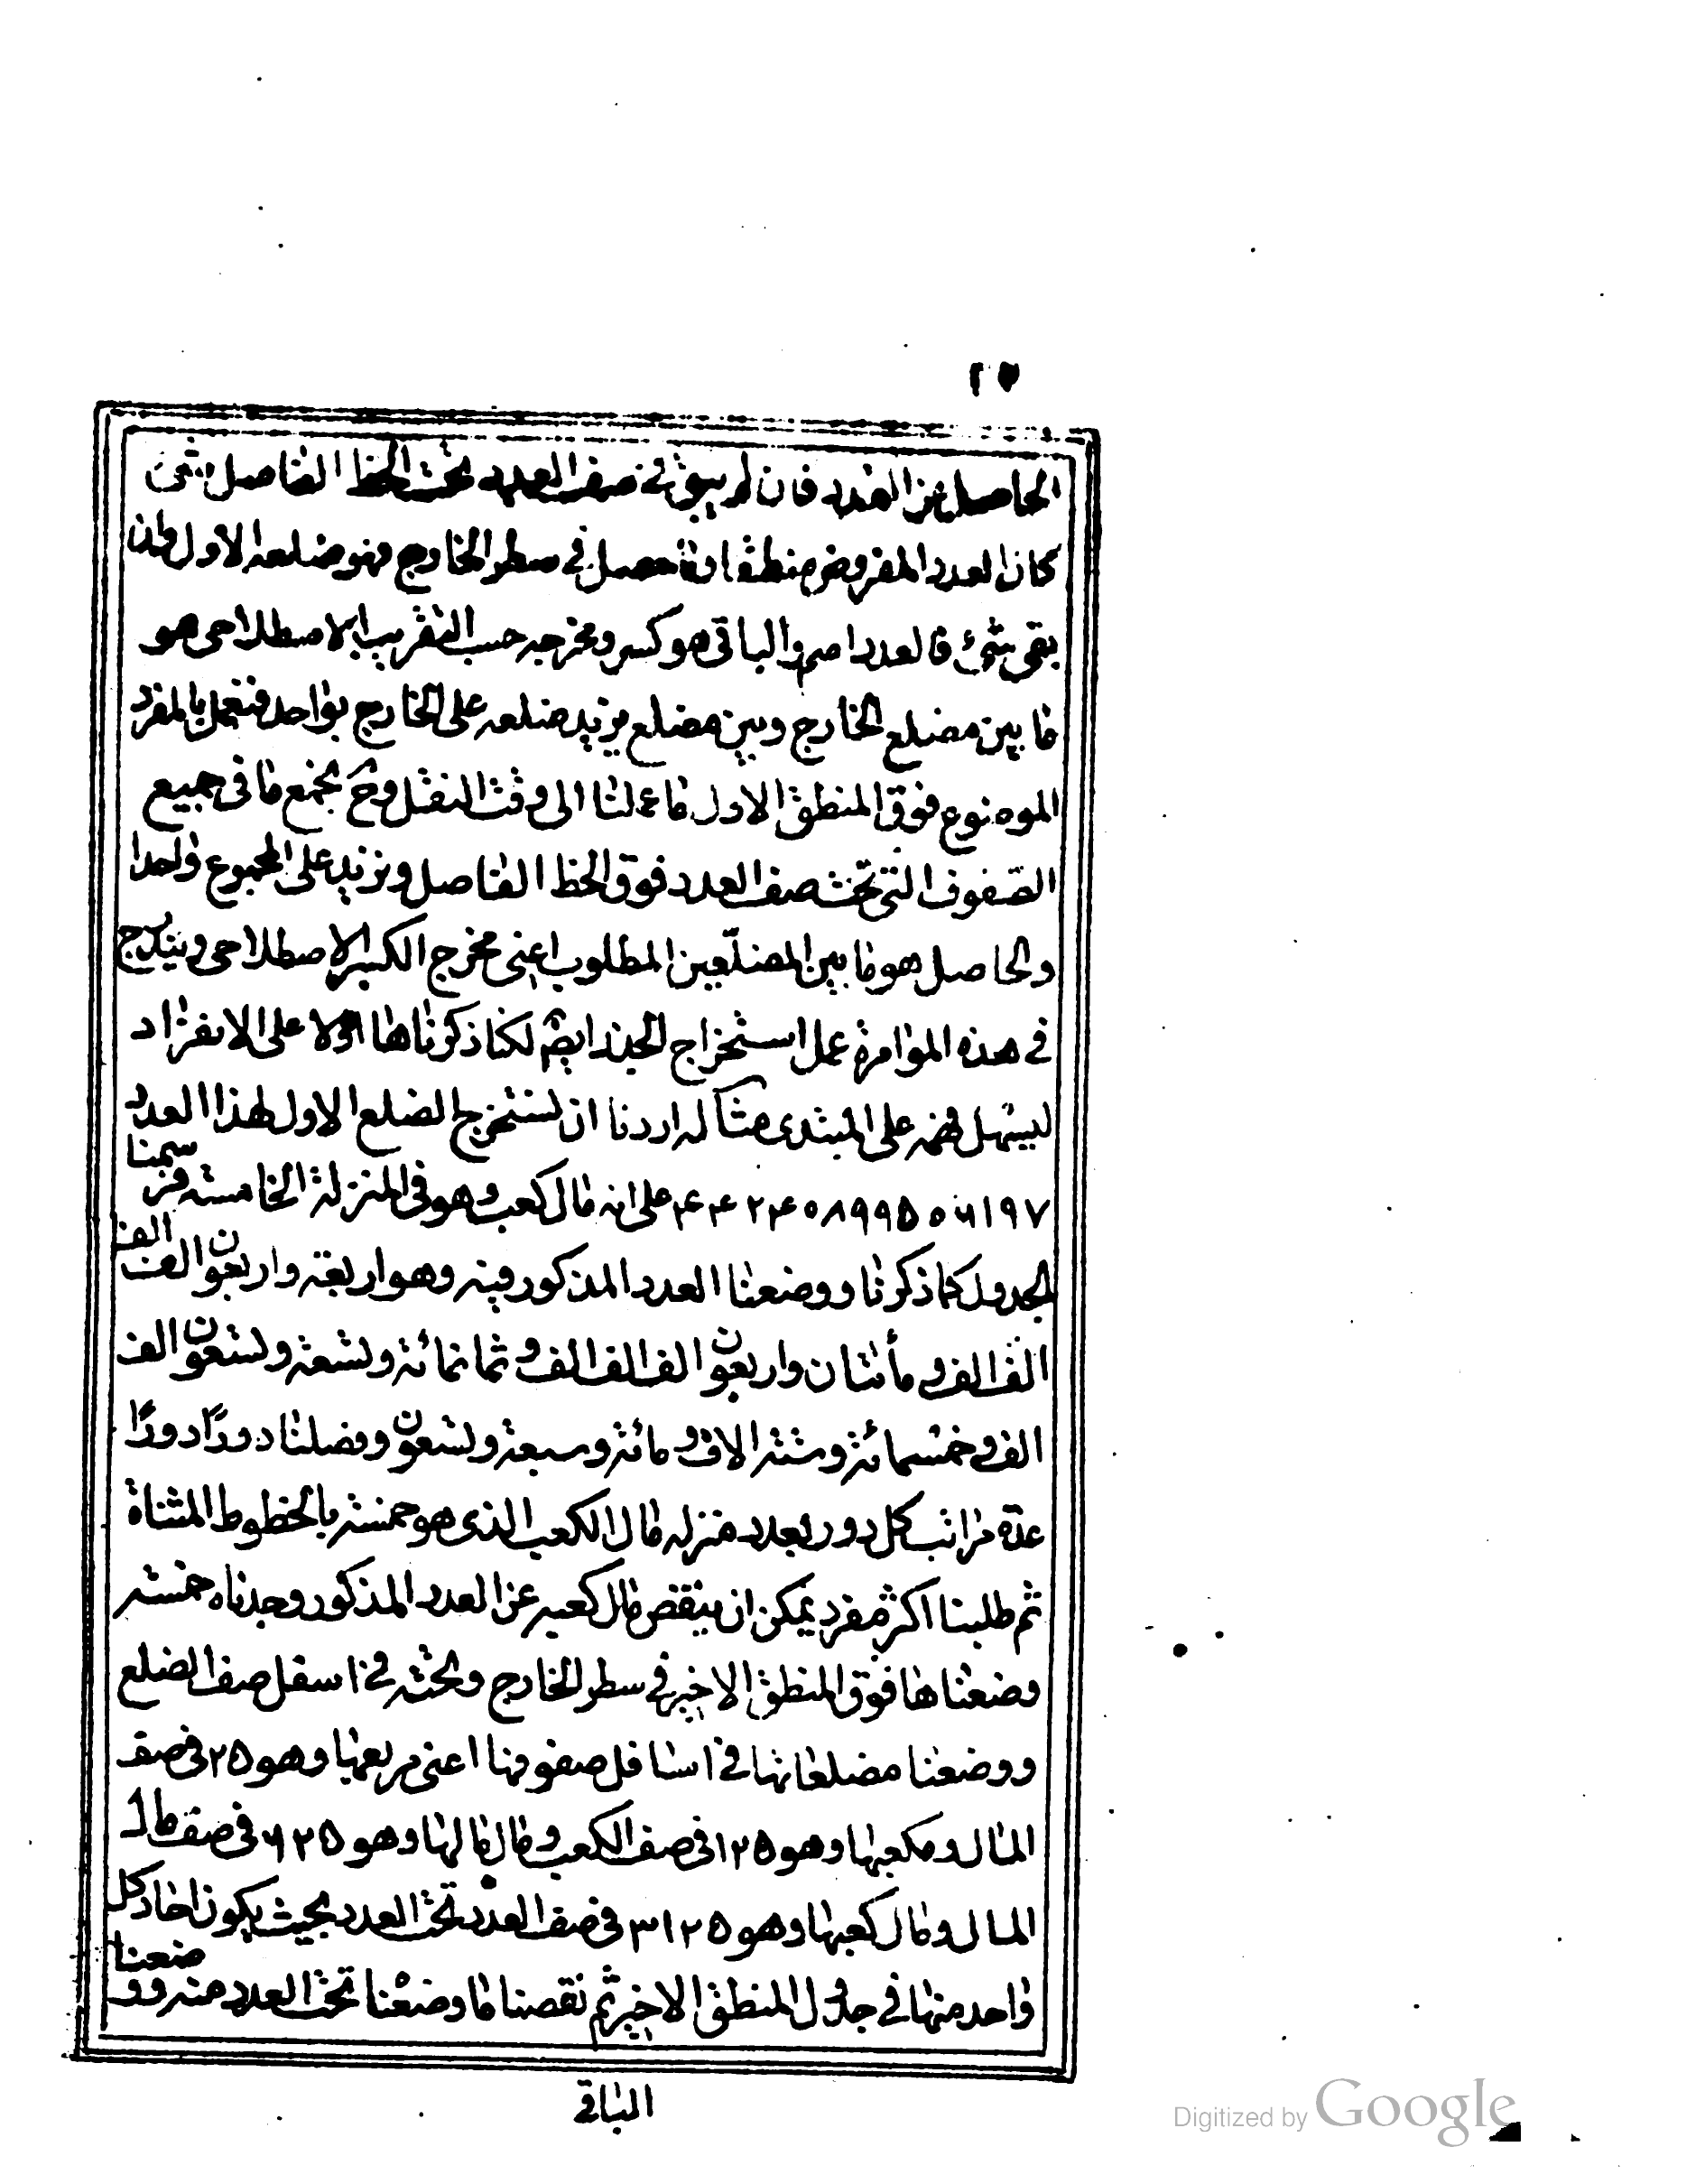 ٢٥
الحاصل من العدد فان لم يبق في صف العدد تحت الخط الفاصل شئ
كان العدد المفروض منطقا وما حصل في سطر الخارج فهو ضلعه الاول وان
بقى شئ فالعدد اصم والباقى هو كسر ومخرجه حسب التقريب الاصطلاحى هو
ما بين مضلع الخارج وبين مضلع يزيد ضلعه على الخارج بواحد فنعمل بالمفرد
الموضوع فوق المنطق الاول ما عملنا الى وقت النقل وح نجمع ما فى جميع
الصفوف التى تحت صف العدد فوق الخط الفاصل ونزيد على المجموع واحدا
والحاصل هو ما بين المضلعين المطلوب اعنى مخرج الكسر الاصطلاحى ويندرج
في هذه الموامرة عمل استخراج الجذر ايضا لكنا ذكرناها اولا على الانفراد
ليسهل فهمه على المبتدى مثاله اردنا ان نستخرج الضلع الاول لهذا العدد
٤٤٢٤٠٨٩٩٥٠٦١٩٧ على انه مال كعب وهو فى المنزلة الخامسة فرسمنا
الجدول كما ذكرنا ووضعنا العدد المذكور فيه وهو اربعة واربعون الف الف
الف الف و مأتتان واربعون الف الف الف و ثمانمائة وتسعة وتسعون الف
الف و خمسمائة وستة الاف و مائة وسبعة وتسعون وفصلنا دورًا دورًا
عدة مراتب كل دور بعدد منزله مال الكعب الذى هو خمسة بالخطوط المثناة
ثم طلبنا اكثر مفرد يمكن ان ينقص مال كعبه عن العدد المذكور وجدناه خمسة
وضعناها فوق المنطق الاخير في سطر الخارج وتحته في اسفل صف الضلع
ووضعنا مضلعاتها في اسافل صفوفها اعنى مربعها وهو ٢٥ فى صف
المال ومكعبها وهو ١٢٥ فى صف الكعب و مال مالها وهو ٦٢٥ فى صف مال
المال و مال كعبها وهو ٣١٢٥ فى صف العدد تحت العدد بحيث يكون احاد كل
واحد منها في جدول المنطق الاخير ثم نقصنا ما وضعنا تحت العدد منه ووضعنا
الباقي
Digitized by Google